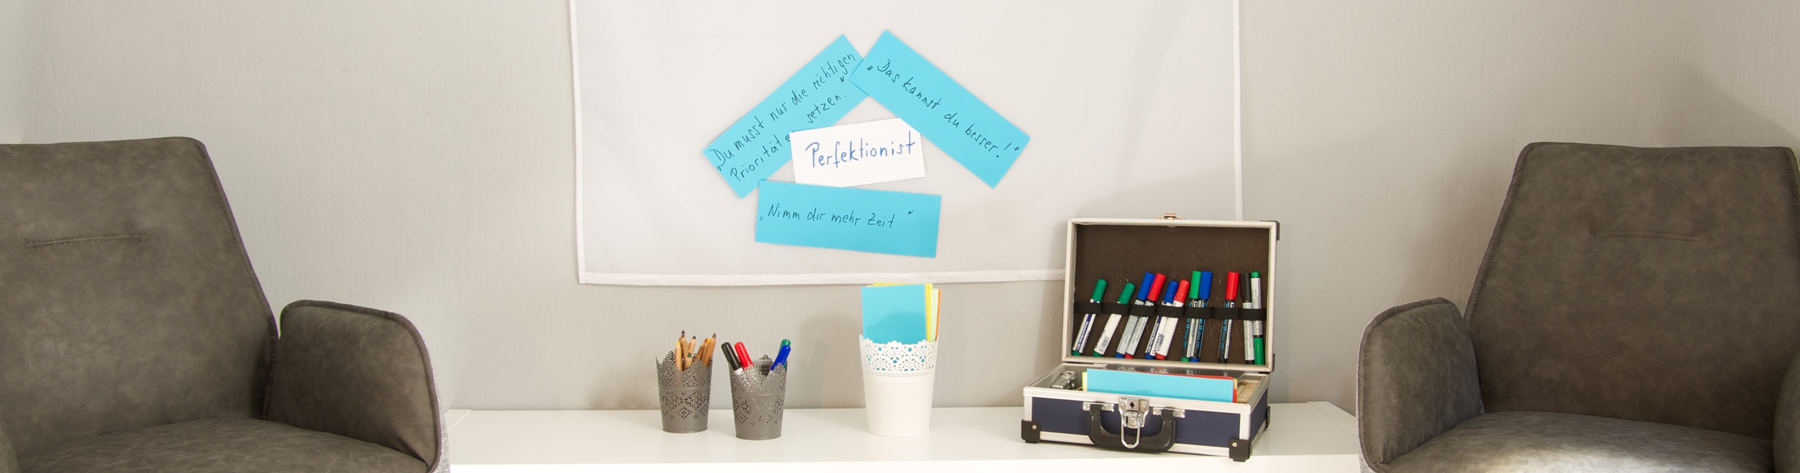 „Du musst nur die richtigen
Prioritäte setzen."
„Das kannst du besser!"
Perfektionist
„Nimm dir mehr Zeit."